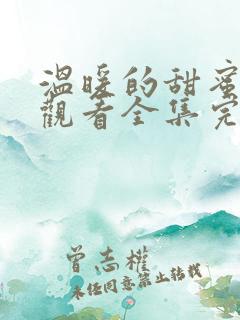 溫暖的甜蜜
觀看全集完
曾志權
未经同意禁止转载